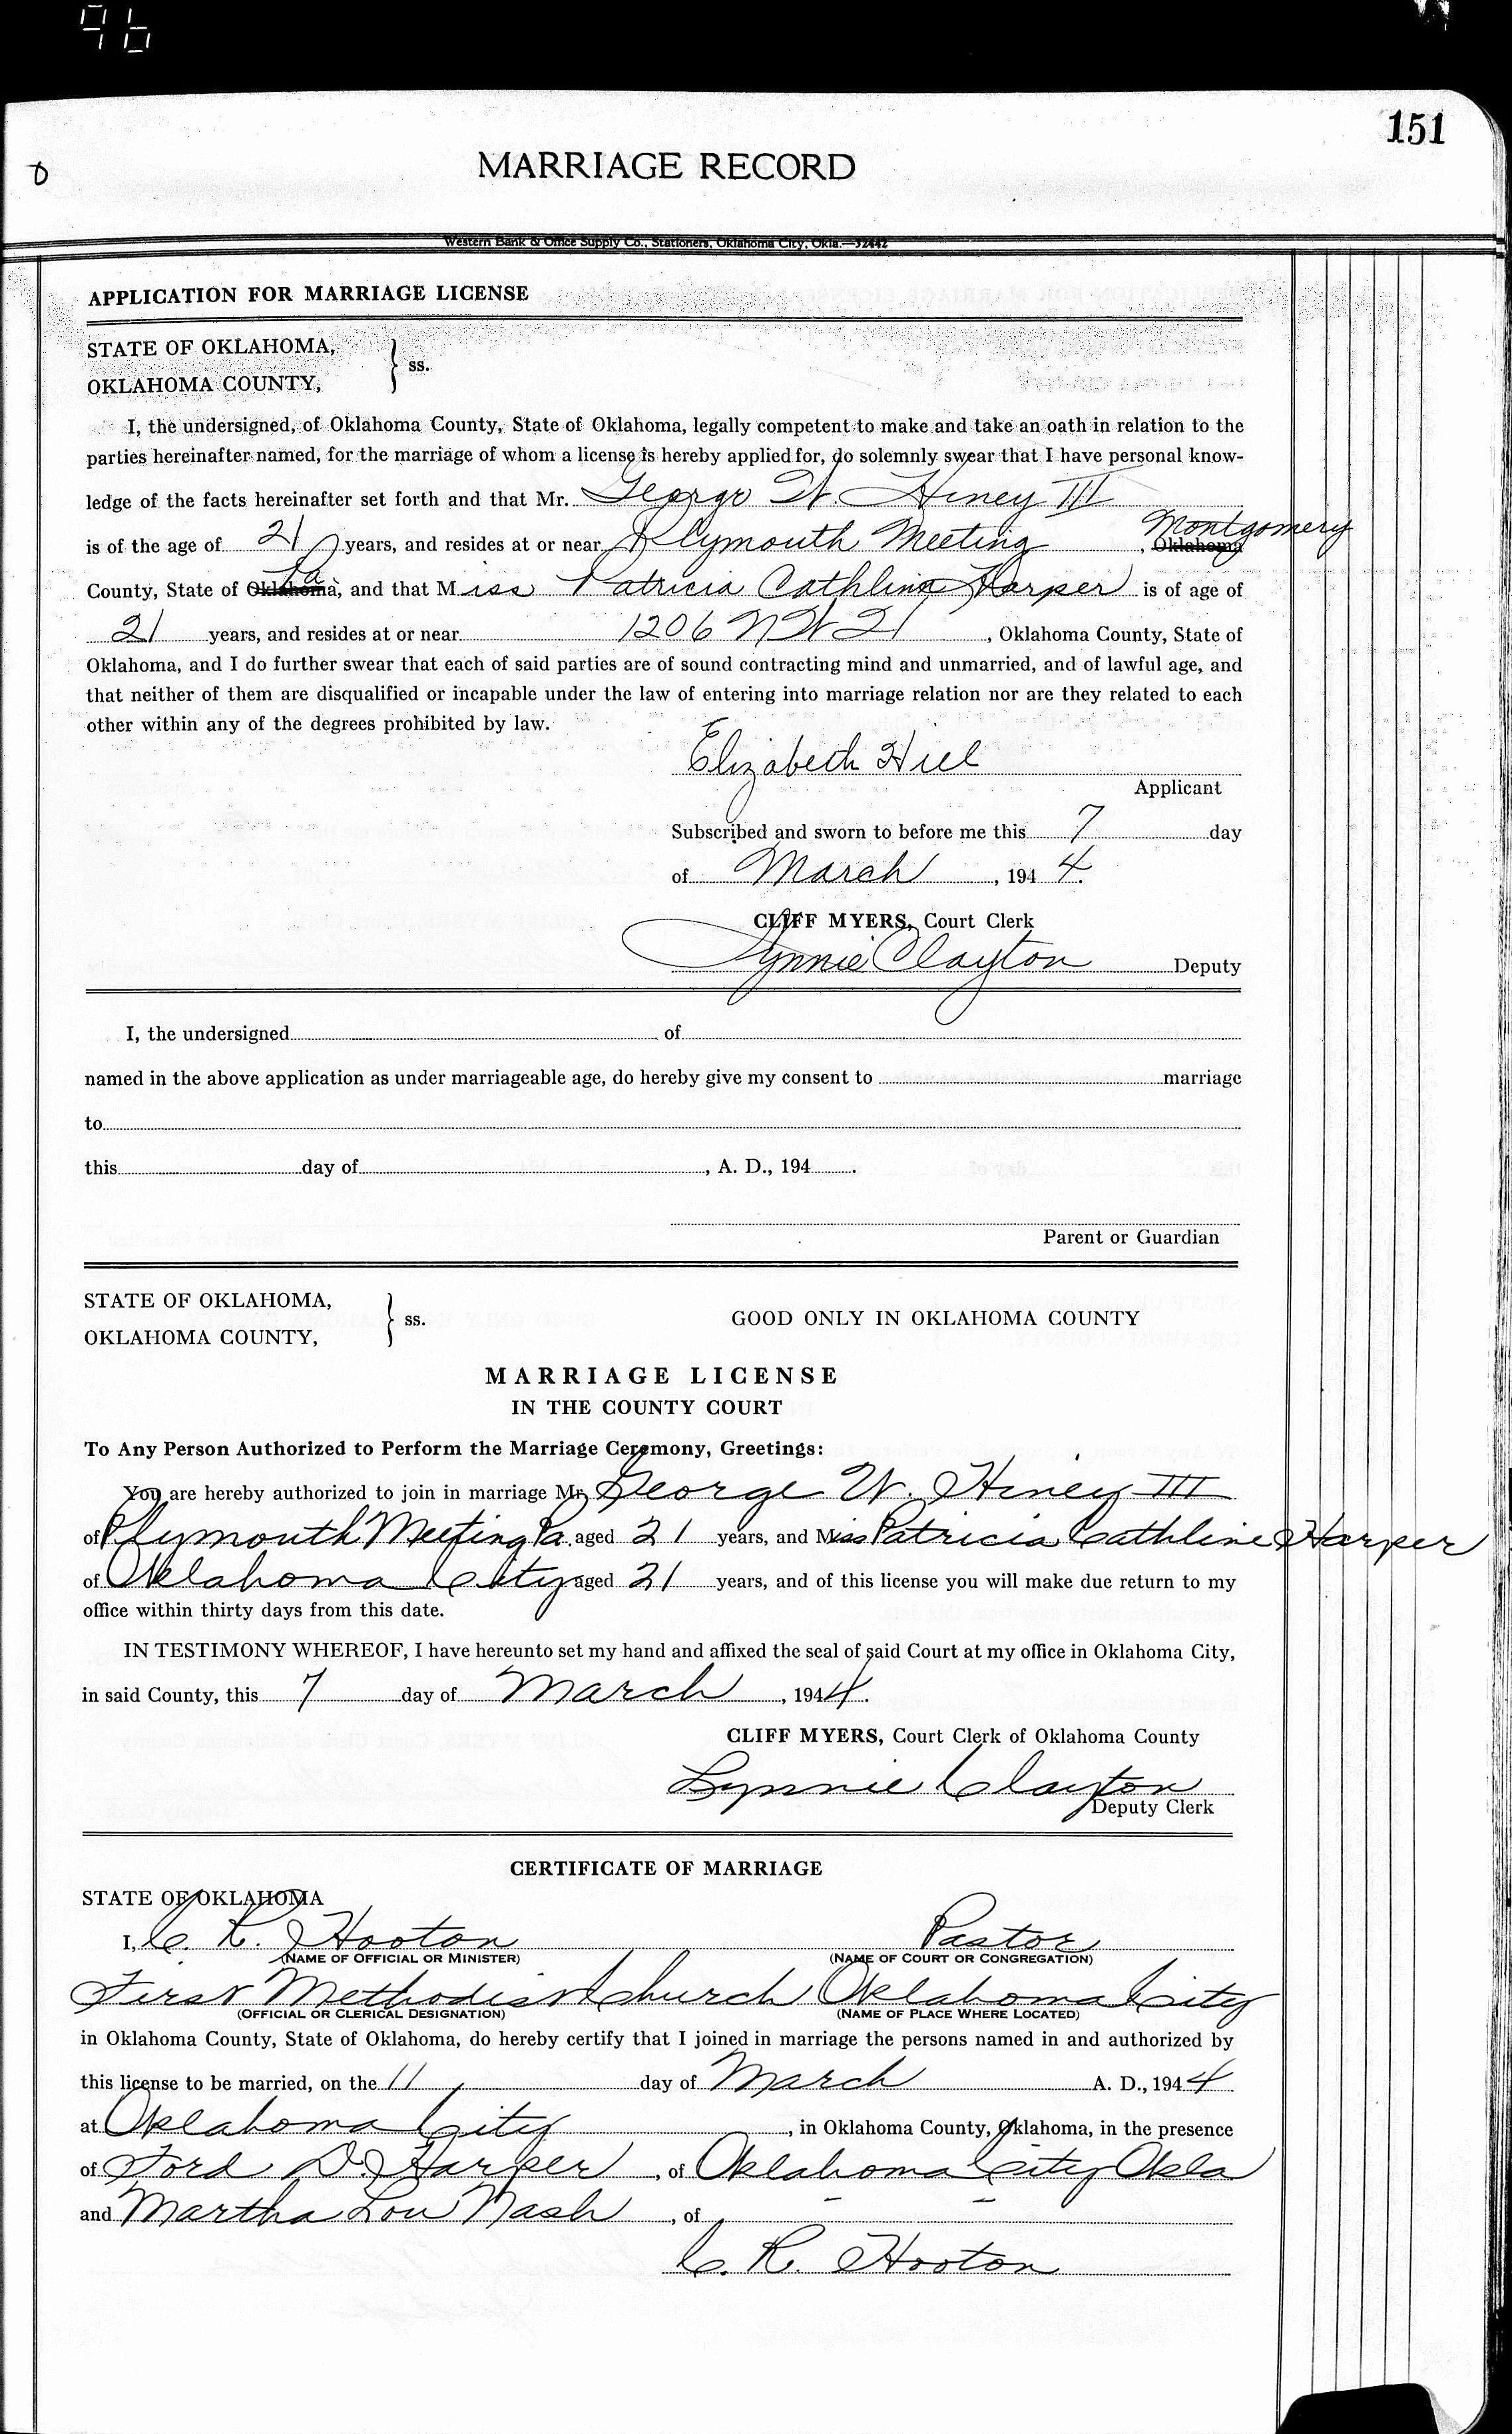 96
151
MARRIAGE RECORD
Western Bank & Office Supply Co., Stationers, Oklahoma City, Okla.—32442
APPLICATION FOR MARRIAGE LICENSE
STATE OF OKLAHOMA,
OKLAHOMA COUNTY, } ss.
I, the undersigned, of Oklahoma County, State of Oklahoma, legally competent to make and take an oath in relation to the
parties hereinafter named, for the marriage of whom a license is hereby applied for, do solemnly swear that I have personal know-
ledge of the facts hereinafter set forth and that Mr. George W. Hiney III
Montgomery
is of the age of 21 years, and resides at or near Plymouth Meeting, Oklahoma
County, State of Oklahoma, Pa and that Miss Patricia Cathline Harper is of age of
21 years, and resides at or near 1206 NW 21, Oklahoma County, State of
Oklahoma, and I do further swear that each of said parties are of sound contracting mind and unmarried, and of lawful age, and
that neither of them are disqualified or incapable under the law of entering into marriage relation nor are they related to each
other within any of the degrees prohibited by law.
Elizabeth Hill
Applicant
Subscribed and sworn to before me this 7 day
of March, 194 4.
CLIFF MYERS, Court Clerk
Lynnie Clayton Deputy
I, the undersigned of
named in the above application as under marriageable age, do hereby give my consent to marriage
to
this day of , A. D., 194 .
Parent or Guardian
STATE OF OKLAHOMA,
OKLAHOMA COUNTY, } ss. GOOD ONLY IN OKLAHOMA COUNTY
MARRIAGE LICENSE
IN THE COUNTY COURT
To Any Person Authorized to Perform the Marriage Ceremony, Greetings:
You are hereby authorized to join in marriage Mr. George W. Hiney III
of Plymouth Meeting Pa. aged 21 years, and Miss Patricia Cathline Harper
of Oklahoma City aged 21 years, and of this license you will make due return to my
office within thirty days from this date.
IN TESTIMONY WHEREOF, I have hereunto set my hand and affixed the seal of said Court at my office in Oklahoma City,
in said County, this 7 day of March, 1944.
CLIFF MYERS, Court Clerk of Oklahoma County
Lynnie Clayton
Deputy Clerk
CERTIFICATE OF MARRIAGE
STATE OF OKLAHOMA
I, C. R. Hooton Pastor
(NAME OF OFFICIAL OR MINISTER) (NAME OF COURT OR CONGREGATION)
First Methodist Church Oklahoma City
(OFFICIAL OR CLERICAL DESIGNATION) (NAME OF PLACE WHERE LOCATED)
in Oklahoma County, State of Oklahoma, do hereby certify that I joined in marriage the persons named in and authorized by
this license to be married, on the 11 day of March A. D., 1944
at Oklahoma City, in Oklahoma County, Oklahoma, in the presence
of Ford D. Harper, of Oklahoma City Okla
and Martha Lou Nash, of " "
C. R. Hooton